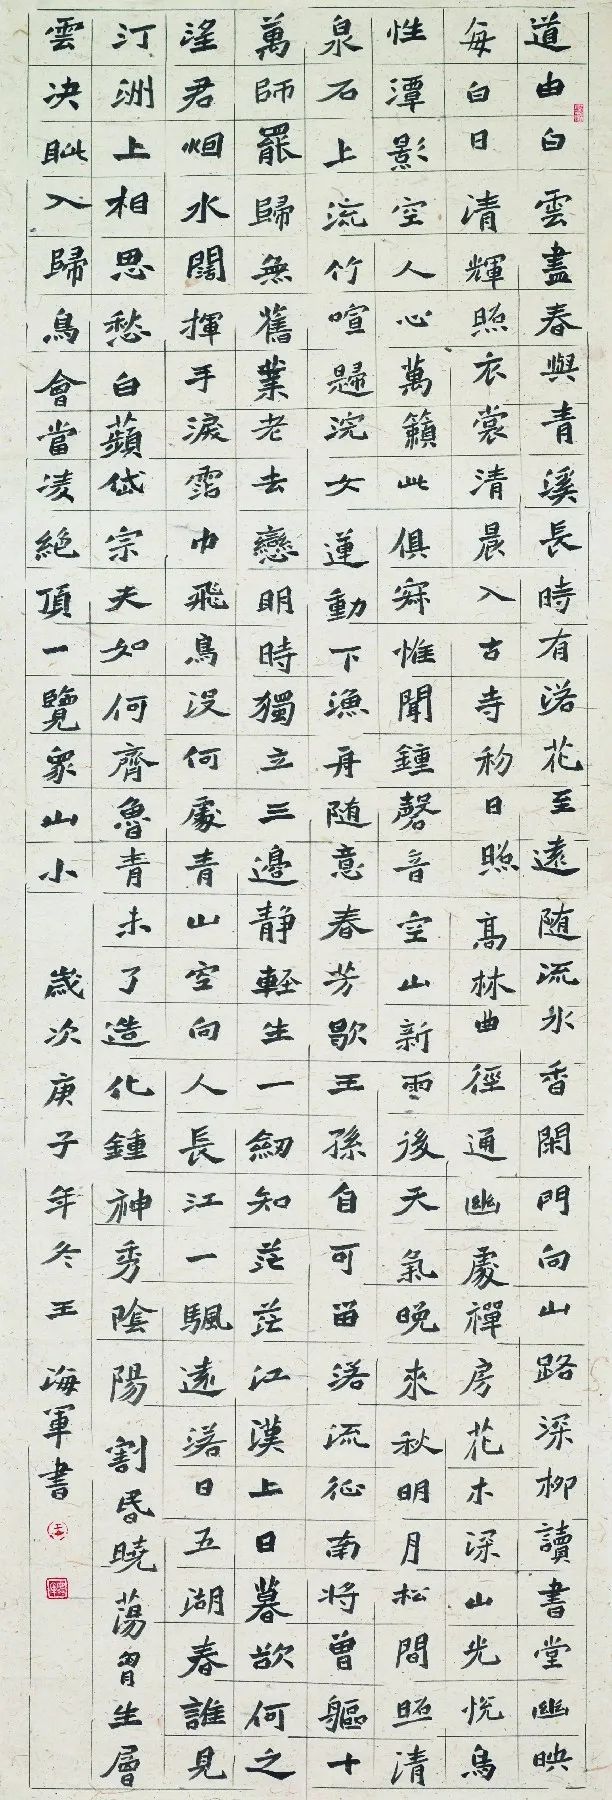 道由白雲盡春與青溪長時有落花至遠随流水香閑門向山路深柳讀書堂幽映
每白日清輝照衣裳清晨入古寺初日照高林曲徑通幽處禪房花木深山光悅鳥
性潭影空人心萬籟此俱寂惟聞鍾磬音空山新雨後天氣晚來秋明月松間照清
泉石上流竹喧歸浣女蓮動下漁舟随意春芳歇王孫自可留落流征南將曾驅十
萬師罷歸無舊業老去戀明時獨立三邊静輕生一劒知茫茫江漢上日暮欲何之
望君烟水闊揮手淚霑巾飛鳥没何處青山空向人長江一颿遠落日五湖春誰見
汀洲上相思愁白蘋岱宗夫如何齊魯青未了造化鍾神秀陰陽割昏曉蕩胷生層
雲决眦入歸鳥會當凌絕頂一覽眾山小 歲次庚子年冬王海軍書